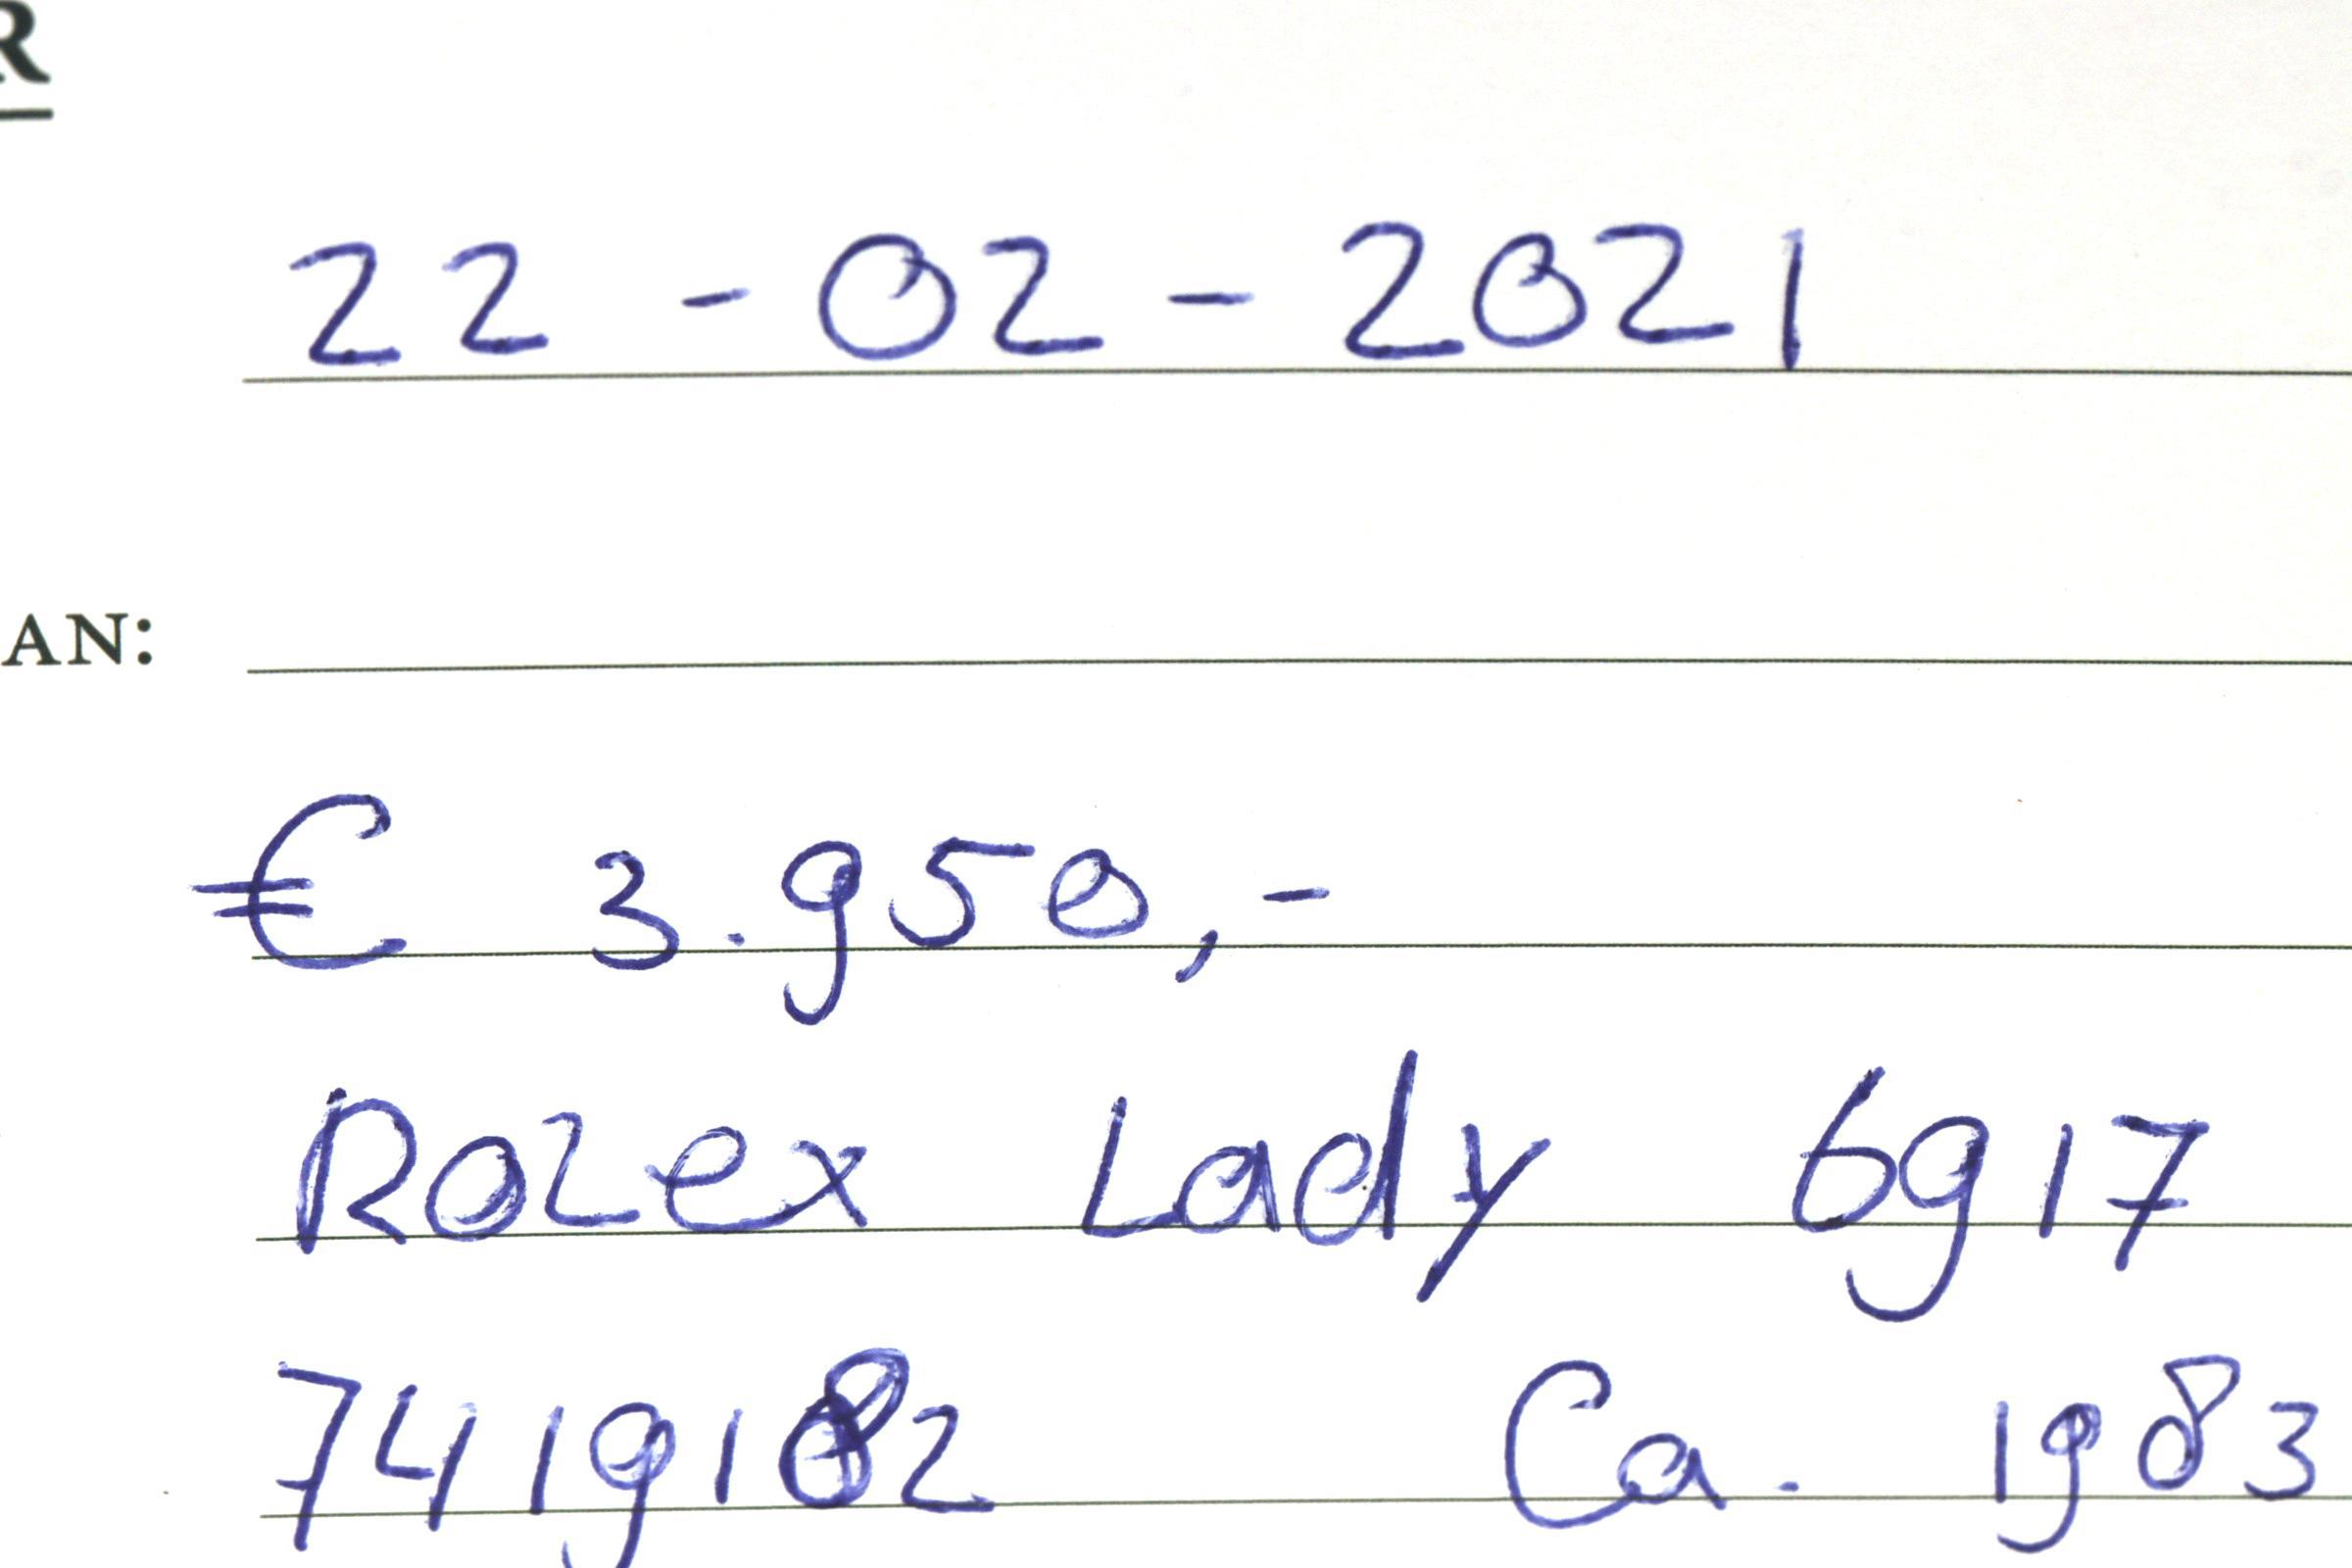 R
22 - 02 - 2021
AN:
€ 3.950,-
Rolex Lady 6917
7419182 Ca. 1983